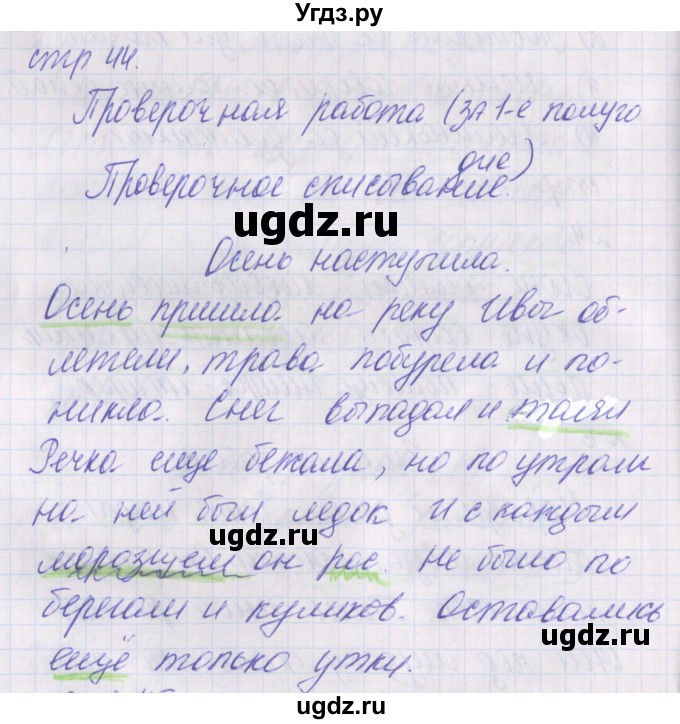 Угдз.ру
стр 44.
Проверочная работа (за 1-е полуго
дие)
Проверочное списывание.
ugdz.ru
Осень наступила.
Осень пришла на реку Ивы об-
летели, трава побурела и по-
никла. Снег выпадал и таял
Речка еще бежала, но по утрам
на ней был ледок. И с каждым
ugdz.ru
морозцем он рос. Не было по
берегам и куликов. Оставались
ugdz.ru
ещё только утки.
ugdz.ru